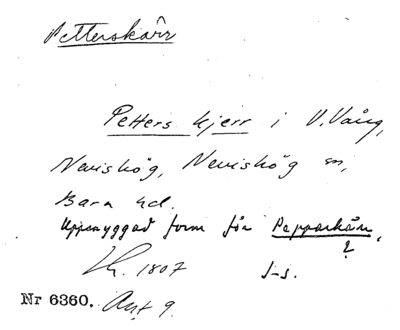 Petterskärr
Petters kjerr i V. Vång,
Nevishög, Nevishög sn,
Bara hd.
Uppsnyggad form för Pepparkärr,
?
Lh. 1807 J-s.
Nr 6360. Ant 9.